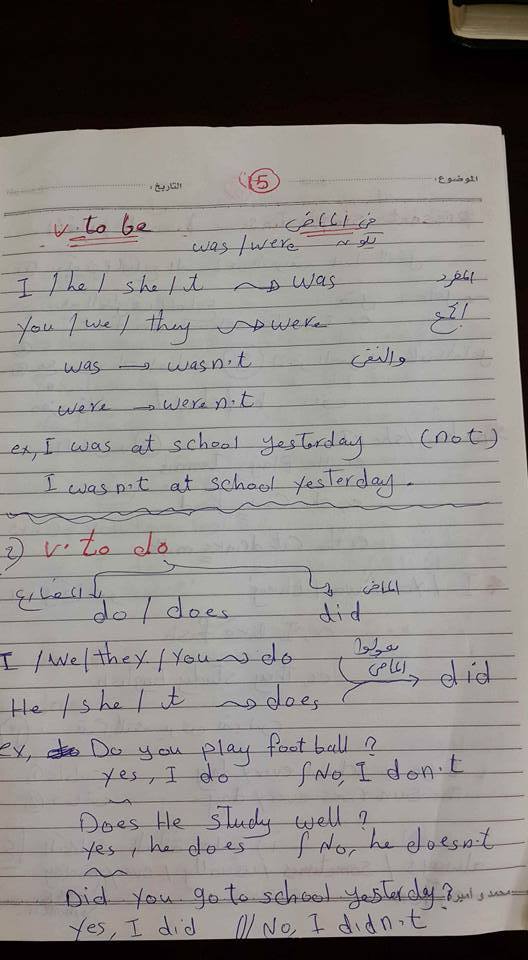 الموضوع: 15 التاريخ:
v. to be في الماضى
was / were
I / he / she / it → was المفرد
You / we / they → were الجمع
was → wasn't والنفى
were → weren't
ex, I was at school yesterday (not)
I wasn't at school yesterday.
2) v. to do
المضارع الماضى
do / does did
I / we / they / you → do الماضى
He / she / it → does did
ex, Do you play football ?
yes, I do / No, I don't
Does He study well ?
yes, he does / No, he doesn't
Did you go to school yesterdy ?
Yes, I did // No, I didn't